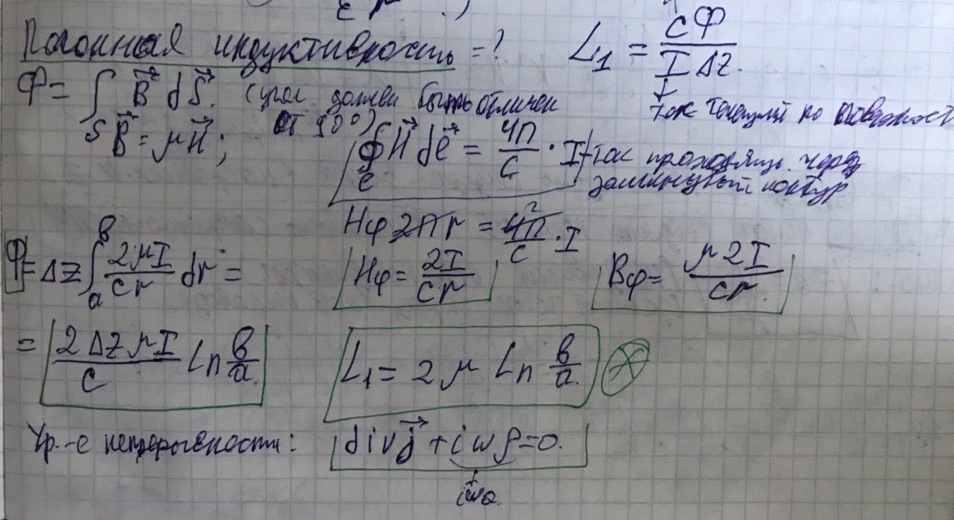 Погонная индуктивность = ? L₁ = cΦ / I Δz.
Φ = ∫S B⃗ dS⃗. (угол должен быть отличен от 90°) ток текущий по
B⃗ = μH⃗; ∮ℓ H⃗ dℓ⃗ = 4π/c · I → ток проходящ. через замкнутый контур
Hφ 2πr = 4π/c · I 2
Φ = Δz ∫ₐᵇ 2μI/cr dr = Hφ = 2I/cr Bφ = μ2I/cr.
= 2ΔzμI/c Ln b/a. L₁ = 2μ Ln b/a.
Ур.-е непрерывности: div j⃗ + iωρ = 0.